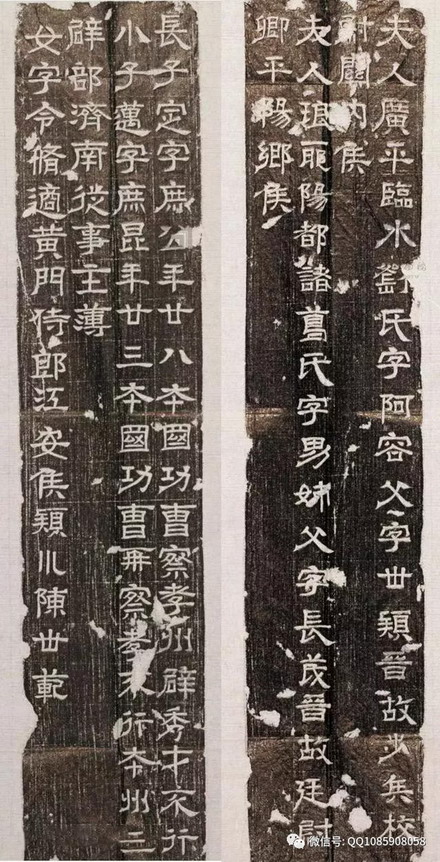 夫人廣平臨水劉氏字阿容父字世穎晉故步兵校
尉關內侯
夫人琅耶陽都諸葛氏字男姊父字長茂晉故廷尉
卿平陽鄉侯
長子定字庶公年廿八本國功曹察孝州辟秀才不行
小子邁字庶昆年廿三本國功曹再察孝不行本州三
辟部濟南從事主薄
女字令脩適黃門侍郎江安侯穎川陳世範
微信号: QQ1085908058